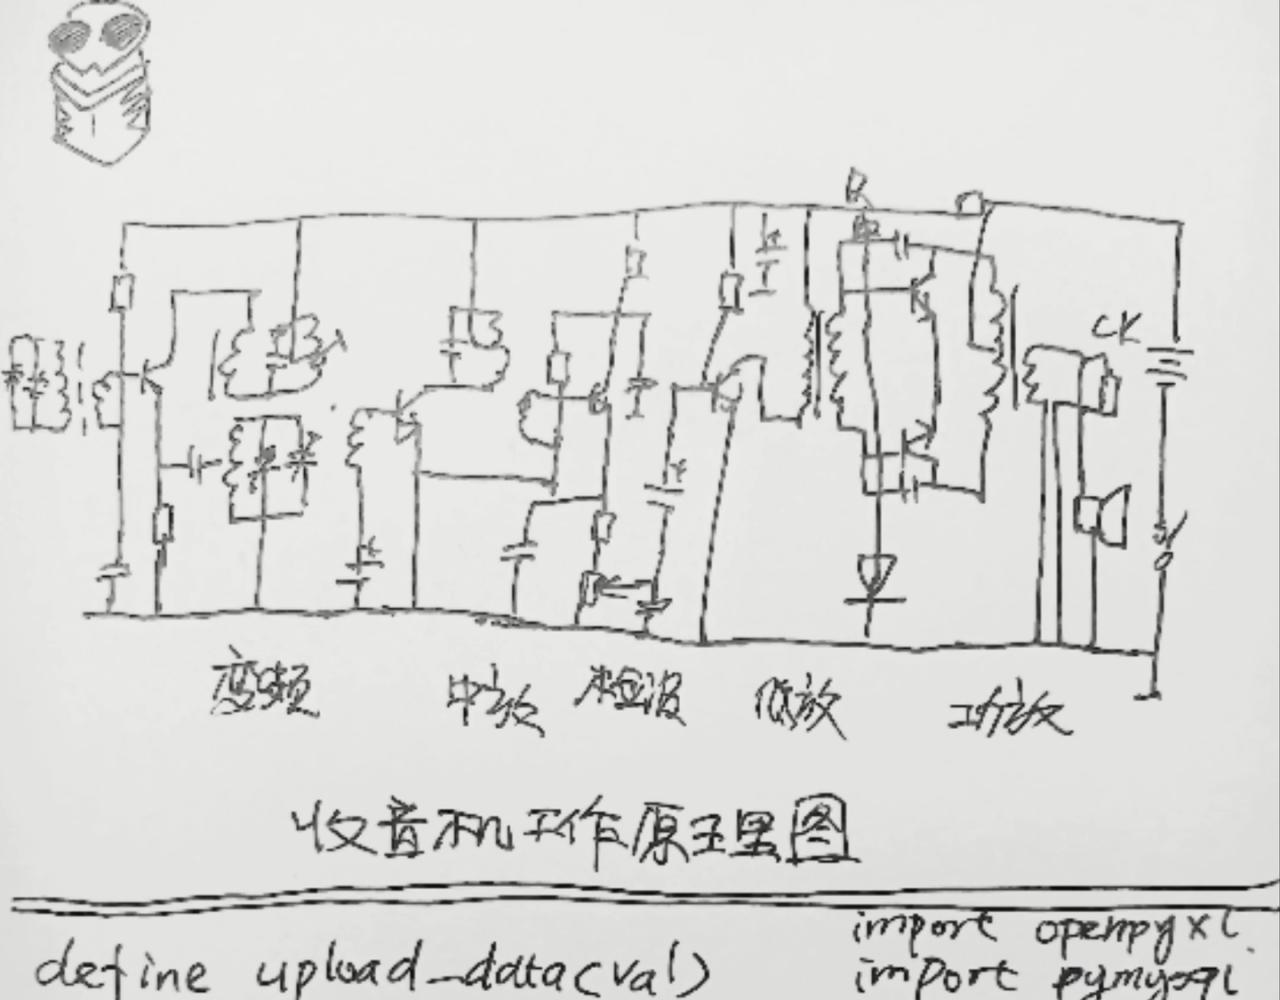 R
CK
变频 中放 检波 低放 功放
收音机工作原理图
import openpyxl
define upload_data(val) import pymysql